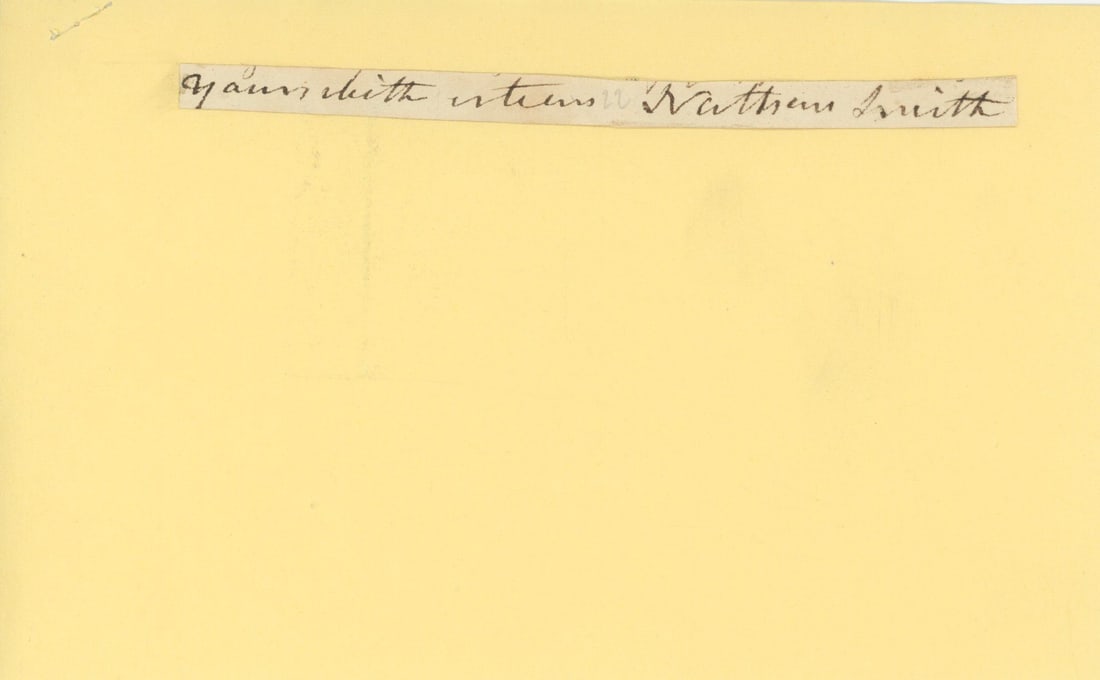 yours with esteem Nathan Smith